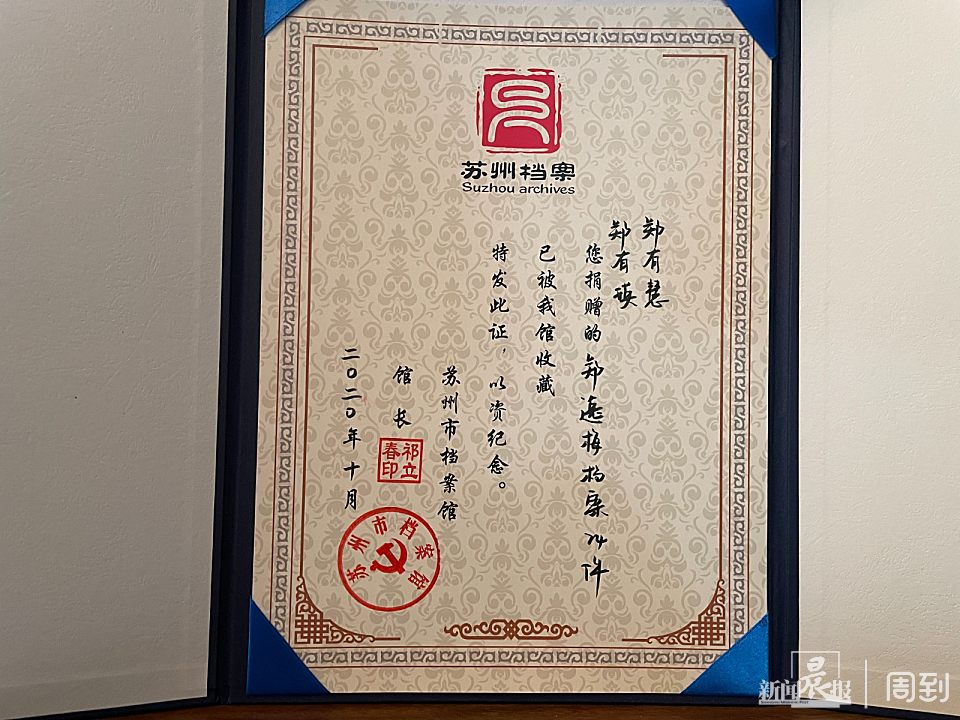 苏州档案
Suzhou archives
郑有慧
郑有瑛
您捐赠的郑逸梅档案 件
已被我馆收藏
特发此证，以资纪念。
苏州市档案馆
馆长
祁立春印
二〇二〇年十月
苏州市档案馆
新闻晨报 周到